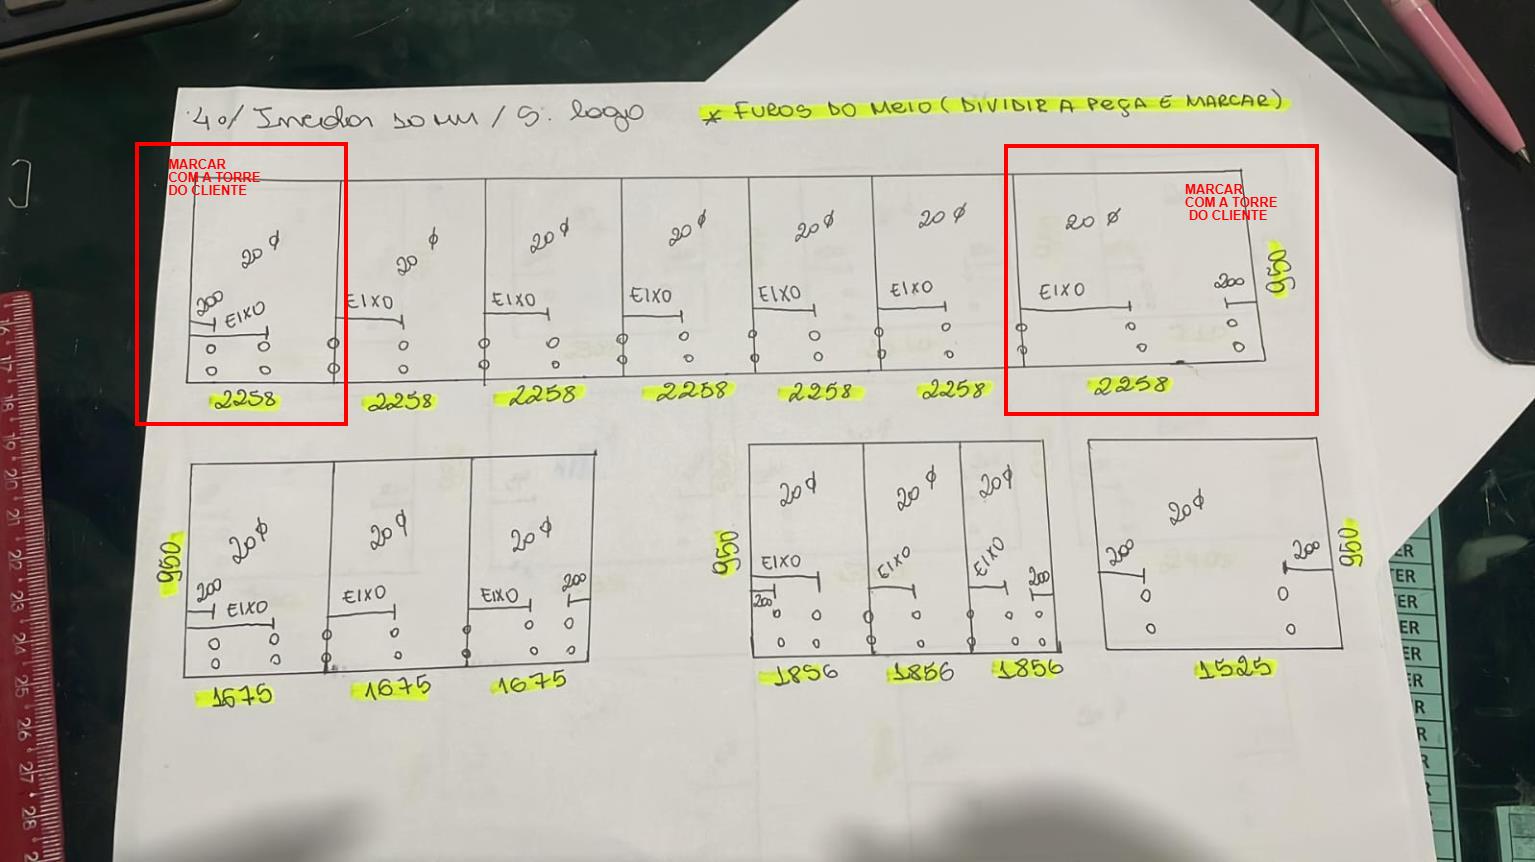 10 MM / S. logo
* FUROS DO MEIO (DIVIDIR A PEÇA E MARCAR)
MARCAR
COM A TORRE
DO CLIENTE
MARCAR
COM A TORRE
DO CLIENTE
20 ϕ
20 ϕ
20 ϕ
20 ϕ
20 ϕ
20 ϕ
20 ϕ
200
EIXO
EIXO
EIXO
EIXO
EIXO
EIXO
EIXO
200
950
2258
2258
2258
2258
2258
2258
2258
950
20 ϕ
20 ϕ
20 ϕ
200
EIXO
EIXO
EIXO
200
1675
1675
1675
950
20 ϕ
20 ϕ
20 ϕ
EIXO
EIXO
EIXO
200
200
1856
1856
1856
20 ϕ
200
200
950
1525
16 17 18 19 20 21 22 23 24 25 26 27 28
ER
TER
ER
ER
ER
ER
R
R